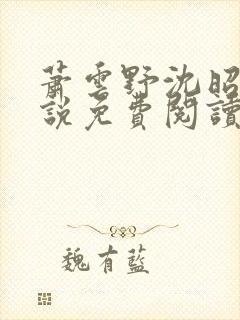 蕭雲野沈昭
說免費閱讀
魏有藍